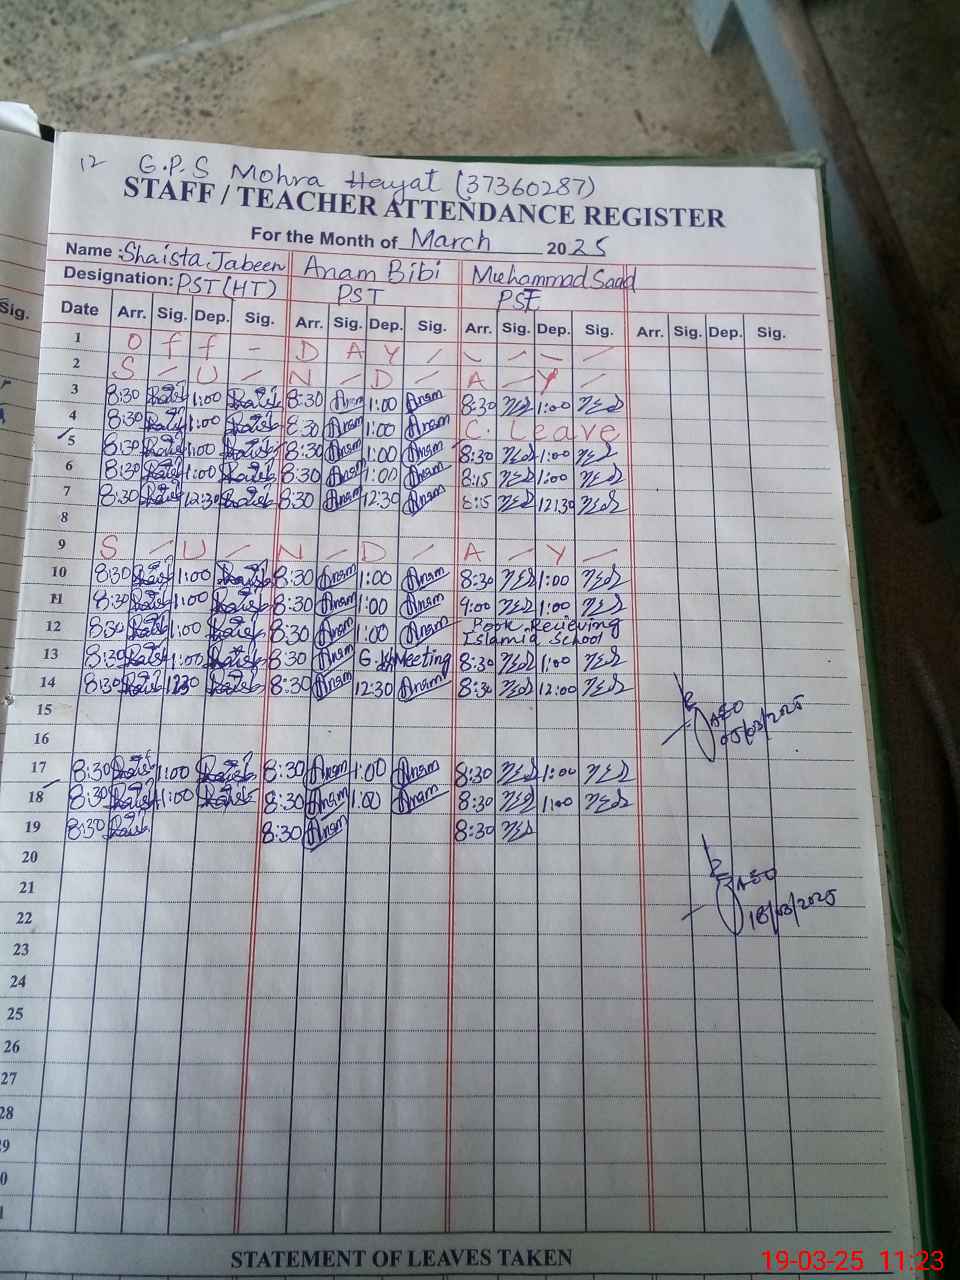 12 G.P.S Mohra Hayat (37360287)
STAFF / TEACHER ATTENDANCE REGISTER
For the Month of March 2025
Name : Shaista Jabeen Anam Bibi Muhammad Saad
Designation: PST (HT) PST PST
Sig. Date Arr. Sig. Dep. Sig. Arr. Sig. Dep. Sig. Arr. Sig. Dep. Sig. Arr. Sig. Dep. Sig.
1 O f f - D A Y
2 S - U - N - D - A - Y -
3 8:30 1:00 8:30 Anam 1:00 Anam 8:30 1:00
4 8:30 1:00 8:30 Anam 1:00 Anam C. Leave
5 8:30 1:00 8:30 Anam 1:00 Anam 8:30 1:00
6 8:30 1:00 8:30 Anam 1:00 Anam 8:15 1:00
7 8:30 12:30 8:30 Anam 12:30 Anam 8:15 12:30
8
9 S - U - N - D - A - Y -
10 8:30 1:00 8:30 Anam 1:00 Anam 8:30 1:00
11 8:30 1:00 8:30 Anam 1:00 Anam 9:00 1:00
12 8:30 1:00 8:30 Anam 1:00 Anam Book Recieving
Islamia School
13 8:30 1:00 8:30 Anam Meeting 8:30 1:00
14 8:30 1230 8:30 Anam 12:30 Anam 8:30 12:00
15
AEO
05/03/2025
16
17 8:30 1:00 8:30 Anam 1:00 Anam 8:30 1:00
18 8:30 1:00 8:30 Anam 1:00 Anam 8:30 1:00
19 8:30 8:30 Anam 8:30
20
21
AEO
18/03/2025
22
23
24
25
26
27
28
29
30
31
STATEMENT OF LEAVES TAKEN
19-03-25 11:23